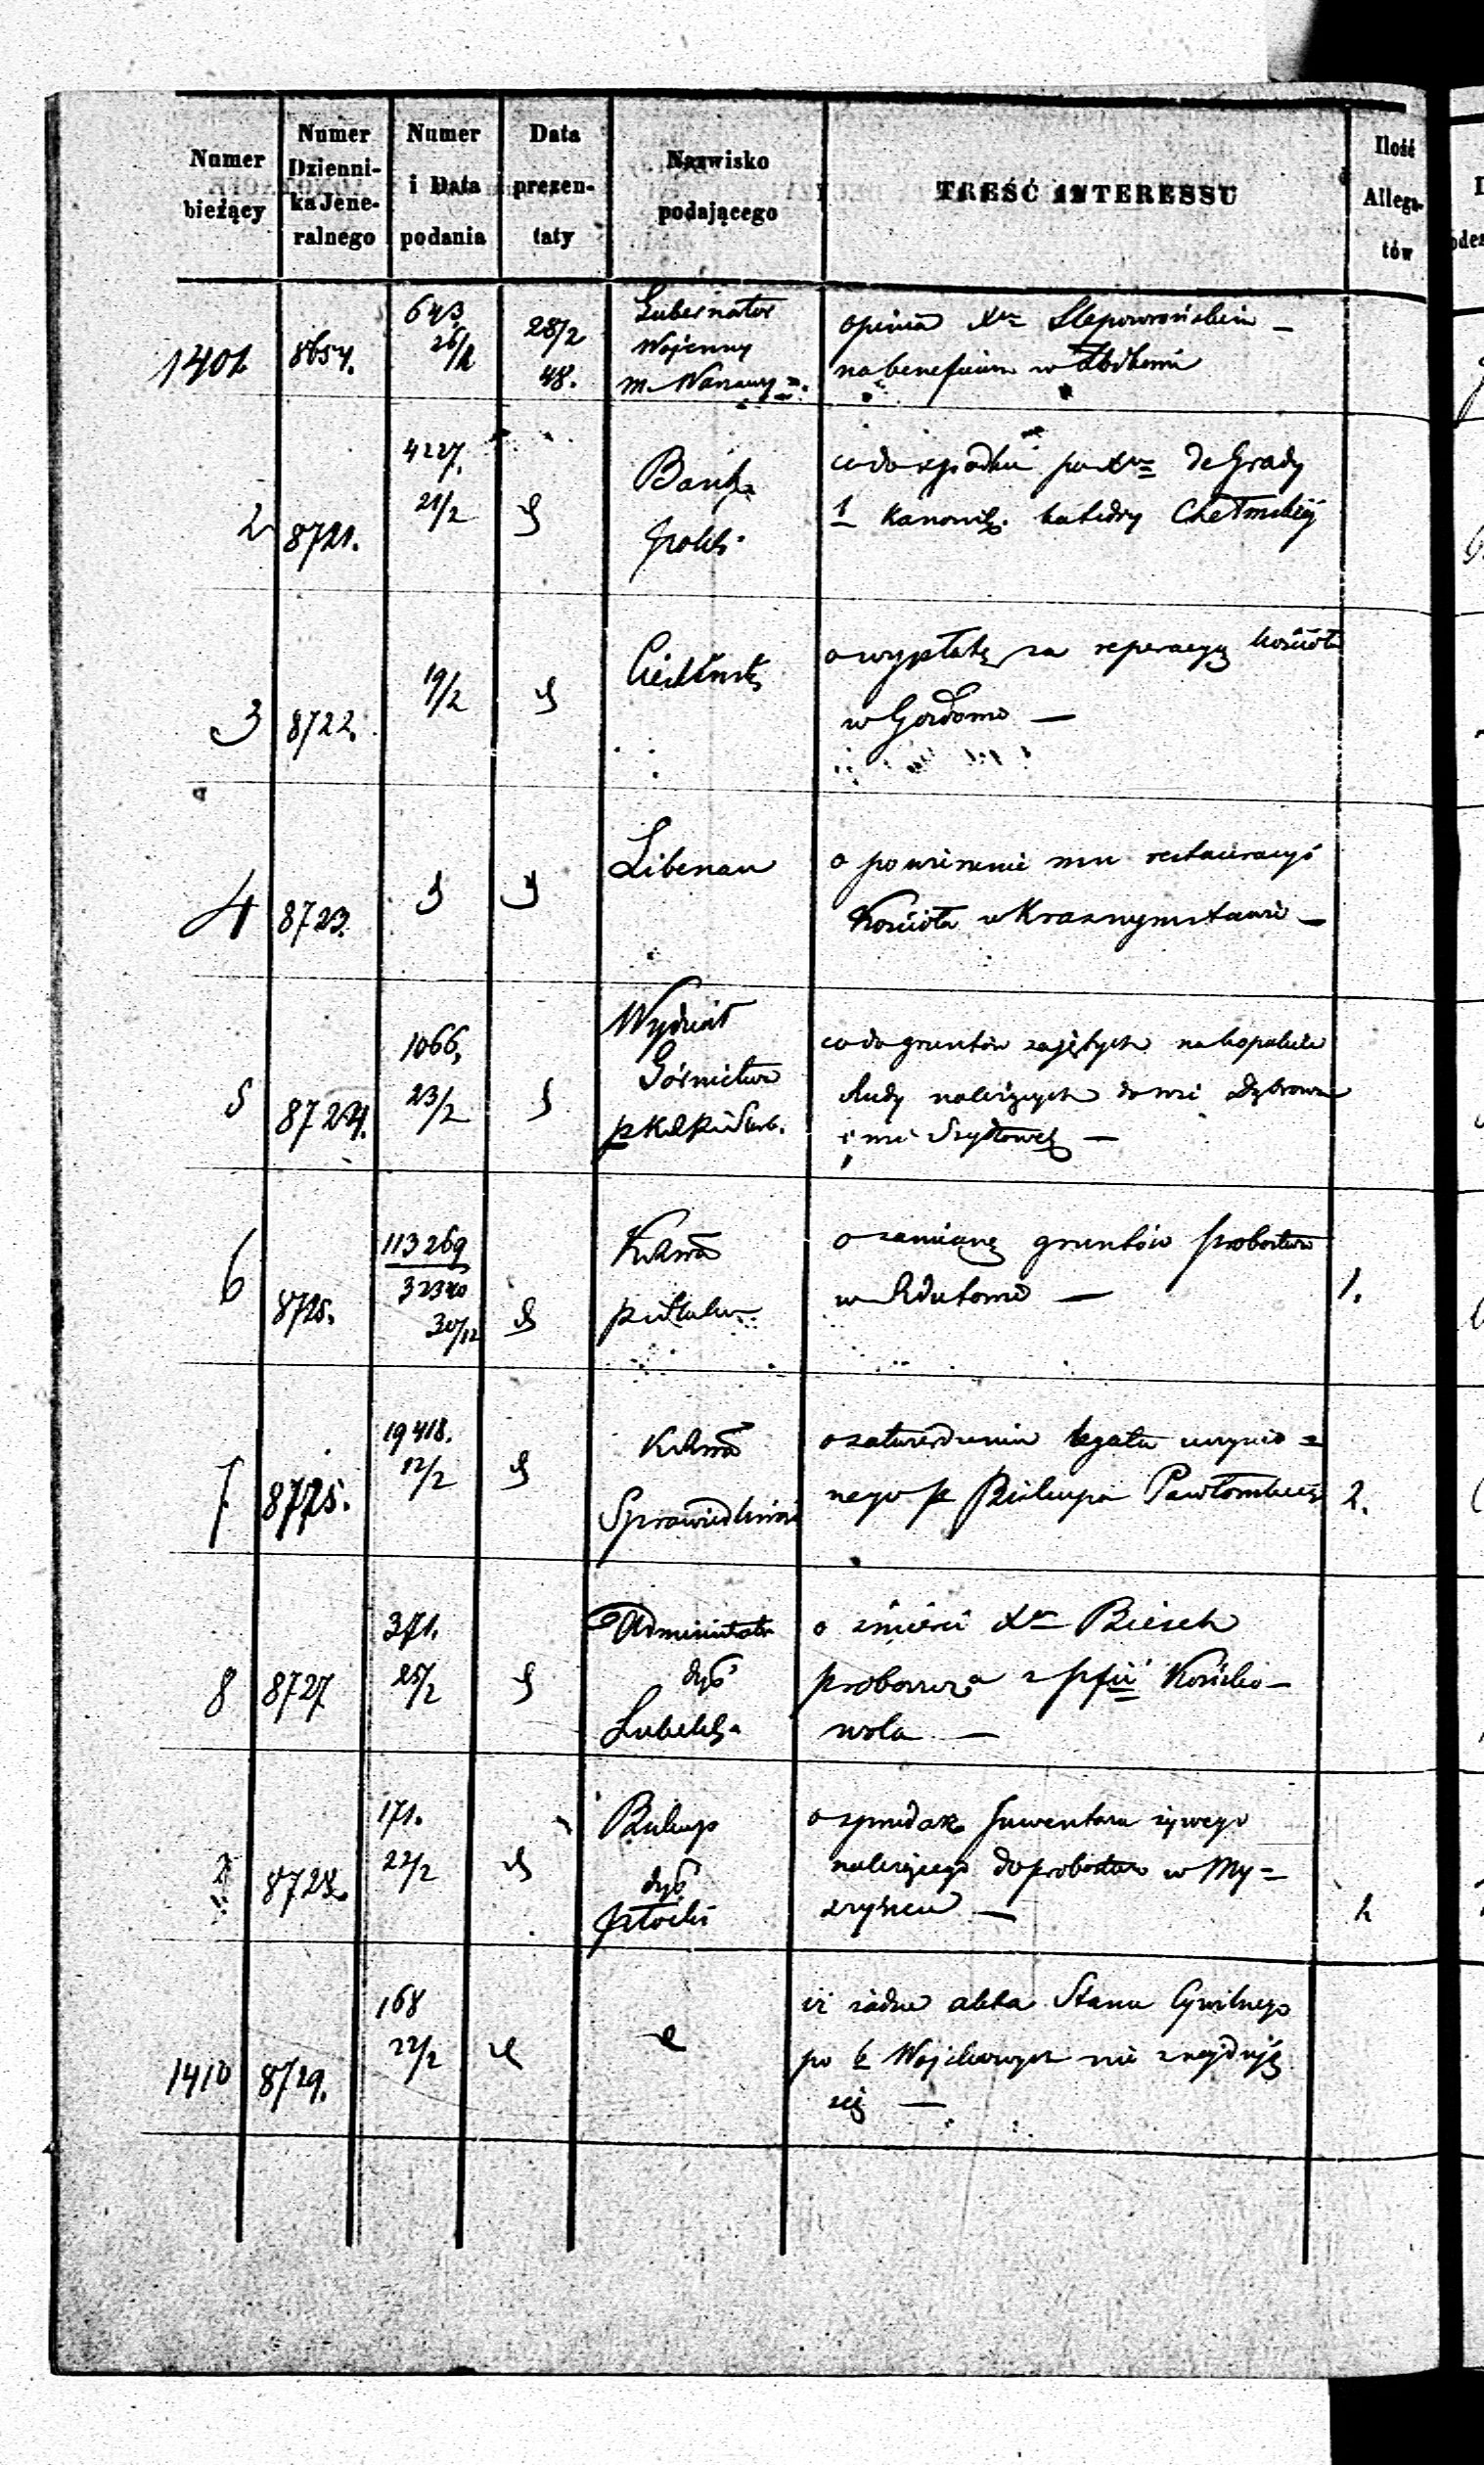 Numer bieżący
Numer Dzienni- ka Jene- ralnego
Numer i Data podania
Data prezen- taty
Nazwisko podającego
TREŚĆ INTERESSU
Ilość Allega- tów
1401 8654. 643 26/2 28/2 48.
Gubernator
Wojenny
m. Warszawy
opinia Xa Slepowrońskim –
na beneficium w
2 8721. 4227. 21/2
Bank
Polski
co do spadku po Xu de Grady
1 Kanonik. katedry Chełmskiej
3 8722. 19/2
o wypłatę za reperacyę kościoła
w Gordomo –
4 8723.
Libenau
o powierzenie mu restauracyi
Kościoła w Krasnymstawie –
5 8724. 1066, 23/2
Wydział
Górnictwa
co do gruntów zajętych na kopalnie
Rudy należących do wsi Dąbrowa
i wsi Szydłówek –
6 8725. 113269 32340 30/12
o zamianę gruntów probostwa
w Adutomo – 1.
7 8725. 19418. 12/2
Sprawiedliwości
o zatwierdzenie legatu uczynio =
nego p Biskupa Pawłowskiego 2.
8 8727 371. 25/2
Administrator
dyi
Lubelsk.
o śmierci Xa Biesek
proboszcza z pfii Kościelo –
wola –
8728. 171. 22/2
Biskup
dyi
Płocki
o sprzedaż Inwentarza żywego
należącego do probostwa w My =
szyńcu – 2
1410 8729. 168 22/2
iż żadne akta Stanu Cywilnego
po Wojskowych nie znajdują
się –